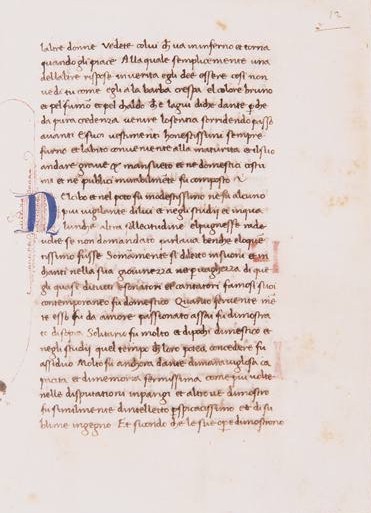 12
laltre donne vedete colui ch va ininferno et torna
quando gli piace Alla quale semplicemente una
dellaltre rispose inverita egli dee essere cosi non
vedi tu come egli a la barba crespa el colore bruno
et pel fumo et pel chaldo che lagiu diche dante pche
da pura credenza venire lo sentia sorridendo passo
avanti E suoi vestimenti honestissimi sempre
furno et labito conveniente alla maturita et il suo
andare grave et mansueto et ne domestici costu
mi et ne publici mirabilmente fu composto
Nel cibo et nel poto fu modestissimo ne fu alcuno
piu vigilante di lui et negli studii et in qua
lunche altra sollecitudine el pugnesse rade
volte se non domandato parlava benche eloque
tissimo fusse Sommamente si diletto in suoni et in
chanti nella sua giovinezza
gli quasi
contemporaneo fu domestico Quanto ferventemē
te esso fu da amore passionato assai fu dimostra
to di sopra Solitario fu molto et di pochi dimestico et
negli studii quel tempo ch loro potea concedere fu
assiduo Molto fu anchora dante di maravigliosa ca
pacita et di memoria fermissima come piu volte
nelle disputationi in parigi et altrove dimostro
fu similmente dintelletto pspicacissimo et di su
blime ingegno Et secondo che le sue opere dimostrono